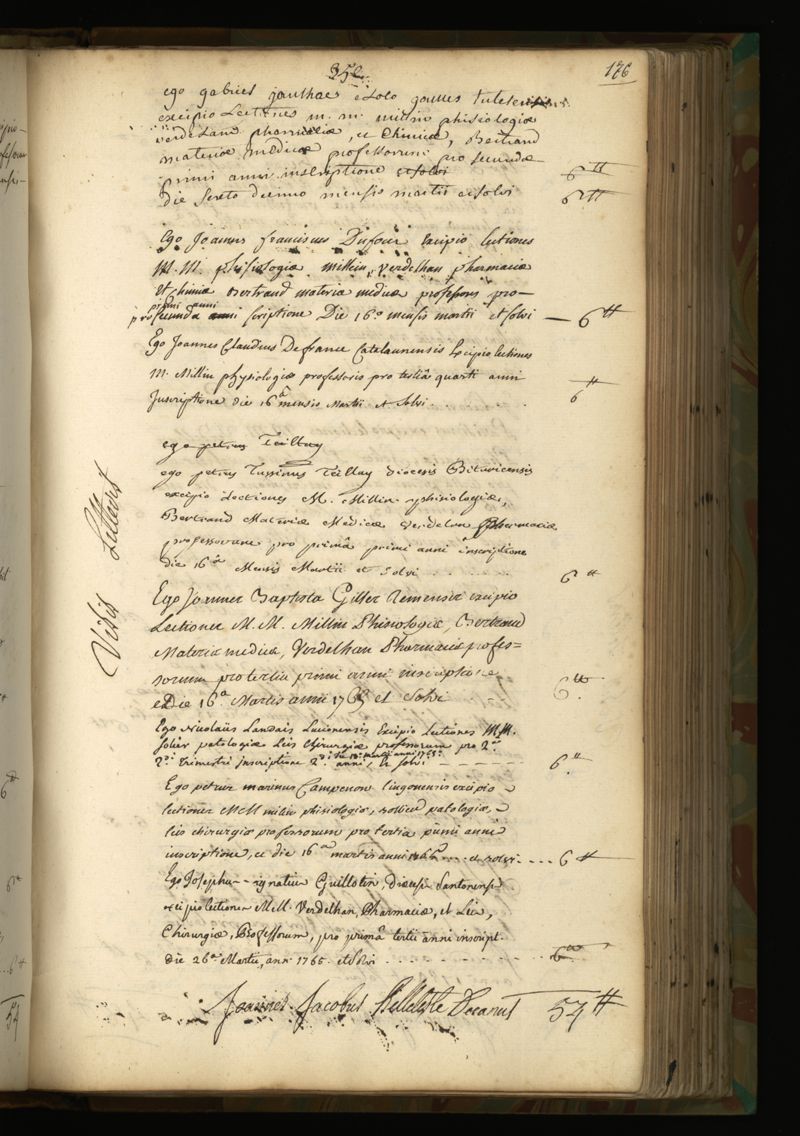 352
176
ego gabriel gouthae e solo
excipio Lectiones m. m. millin phisiologiæ
verdeLand pharmaciæ, et Chimiæ, Bertrand
materiæ medicæ professorum pro secunda
primi anni inscriptione et solvi 6 ₶
die Sexto decimo mensis martii et solvi 6 ₶
Ego Joannes franciscus Dufour excipio lectiones
M. M. phisiologiæ millin, Verdelhan pharmaciæ
et chimiæ Bertrand materiæ medicæ professores pro
primi anni
pro secunda anni scriptione Die 16.º mensis martii et solvi — 6 ₶
Ego Joannes Claudius Defrance Catalaunensis Excipio lectiones
M. Millin physiologiæ professoris pro tertiâ quarti anni
Inscriptione die 16â mensis Martii et Solvi . 6 ₶
ego petrus Teillay
ego petrus Tussinus Teillay Diocesis Bituricensis
excipio Lectiones M. Millin phisiologiæ,
Bertrand Materiæ Medicæ Verdelan pharmaciæ
professorum pro primâ primi anni inscriptione
die 16â Mensis Martii et Solvi . . . . . 6 ₶
Visis Litteris
Ego Joannes Baptista Gillet Remensis excipio
Lectiones M. M. Millin Phisiologiæ, Bertrand
Materiæ medicæ, Verdelhan Pharmaciæ profes=
sorum pro tertia primi anni inscriptione
Die 16.a Martis anni 1765 et Solvi 6 ₶
Ego Nicolaüs Landais Lucionensis Excipio Lectiones M.M.
Solier patologiæ Leis Chirurgiæ professorum pro 2.a
2.i trimestri Inscriptione 2.i anni, et Solvi - - - - - 6 ₶
die 16.a martis anni 1765
Ego petrus marinus Campenon lingonensis excipio
lectiones MM millin phisiologiæ, sollier patologiæ,
leis chirurgiæ professorum pro tertia primi anni
inscriptione, et die 16a martis anni 1765 .... et solvi .... 6 ₶
Ego Josephus - ignatius Guillotin, Diœcesis Santonensis
excipio lectiones M.M. Verdelhan, Pharmaciæ, et Leis,
Chirurgiæ, Professorum, pro primâ tertii anni inscript.
die 26.a Martii, anni 1765. et Solvi . . . . . . . 6 ₶
Joannes Jacobus Belleteste Decanus 54 ₶